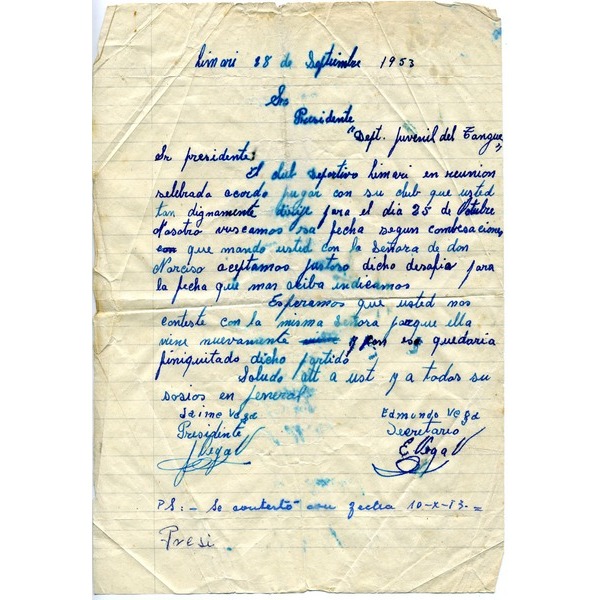 Limari 28 de Septiembre 1953
Sr
Presidente
"Dept. juvenil del Tangue"
Sr presidente
El club Deportivo Limari en reunion
selebrada acordo jugar con su club que usted
tan dignamente dirije para el dia 25 de Octubre
Nosotro vuscamos esa fecha segun convesaciones
que mando usted con la Señora de don
Narciso aceptamos justoso dicho desafia para
la fecha que mas ariba indicamos
Esperamos que usted nos
conteste con la misma señora porque ella
viene nuevamente y con eso quedaria
finiquitado dicho partido
Saludo att a ust y a todos su
sosios en jeneral
Jaime Vega Edmundo Vega
Presidente Secretario
J Vega V E Vega V
PS:- Se contestó con fecha 10-X-53.=
Presi